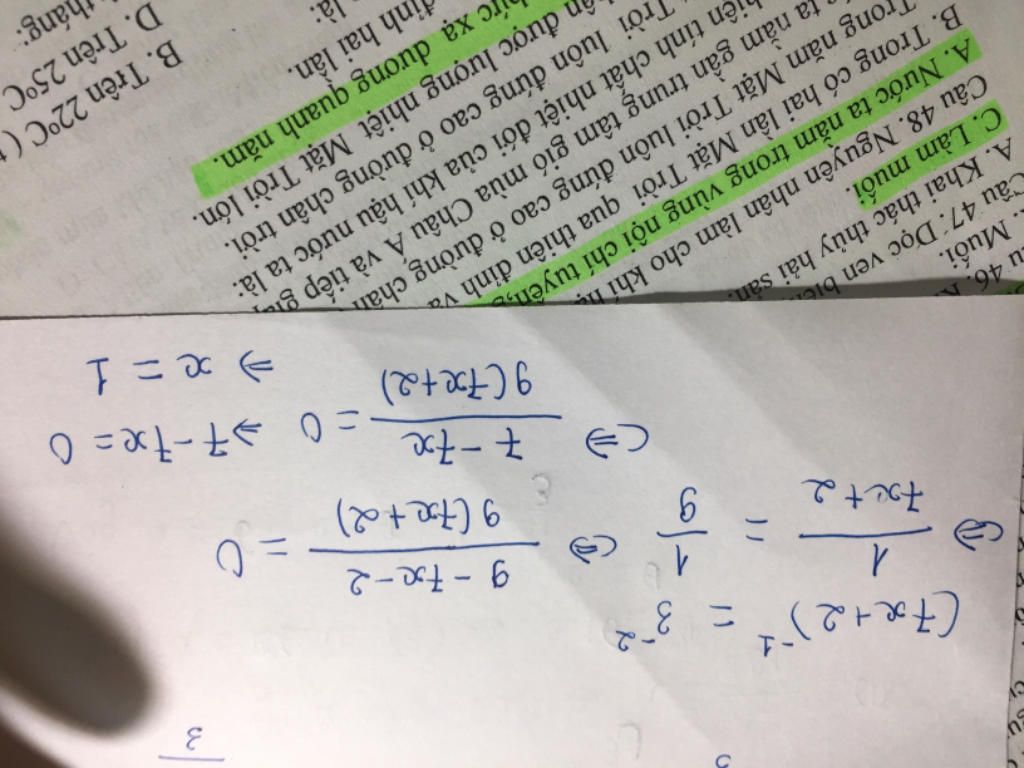 3
(7x+2)⁻¹ = 3⁻²
⇔ 1/(7x+2) = 1/9 ⇔ (9-7x-2)/(9(7x+2)) = 0
⇔ (7-7x)/(9(7x+2)) = 0 ⇒ 7-7x = 0
⇒ x = 1
46. K
Muối.
Câu 47. Dọc ven biển
A. Khai thác thủy hải sản.
C. Làm muối.
Câu 48. Nguyên nhân làm cho khí h
A. Nước ta nằm trong vùng nội chí tuyến,
Trong có hai lần Mặt Trời qua thiên đỉnh và
B. Trong năm Mặt Trời luôn đứng cao ở đường chân
ta nằm gần trung tâm gió mùa Châu Á và tiếp gi
hiện tính chất nhiệt đới của khí hậu nước ta là:
Trời luôn đứng cao ở đường chân trời.
ận được lượng nhiệt Mặt Trời lớn.
ức xạ dương quanh năm.
đỉnh hai lần.
là:
B. Trên 22°C (
D. Trên 25°C
tháng: